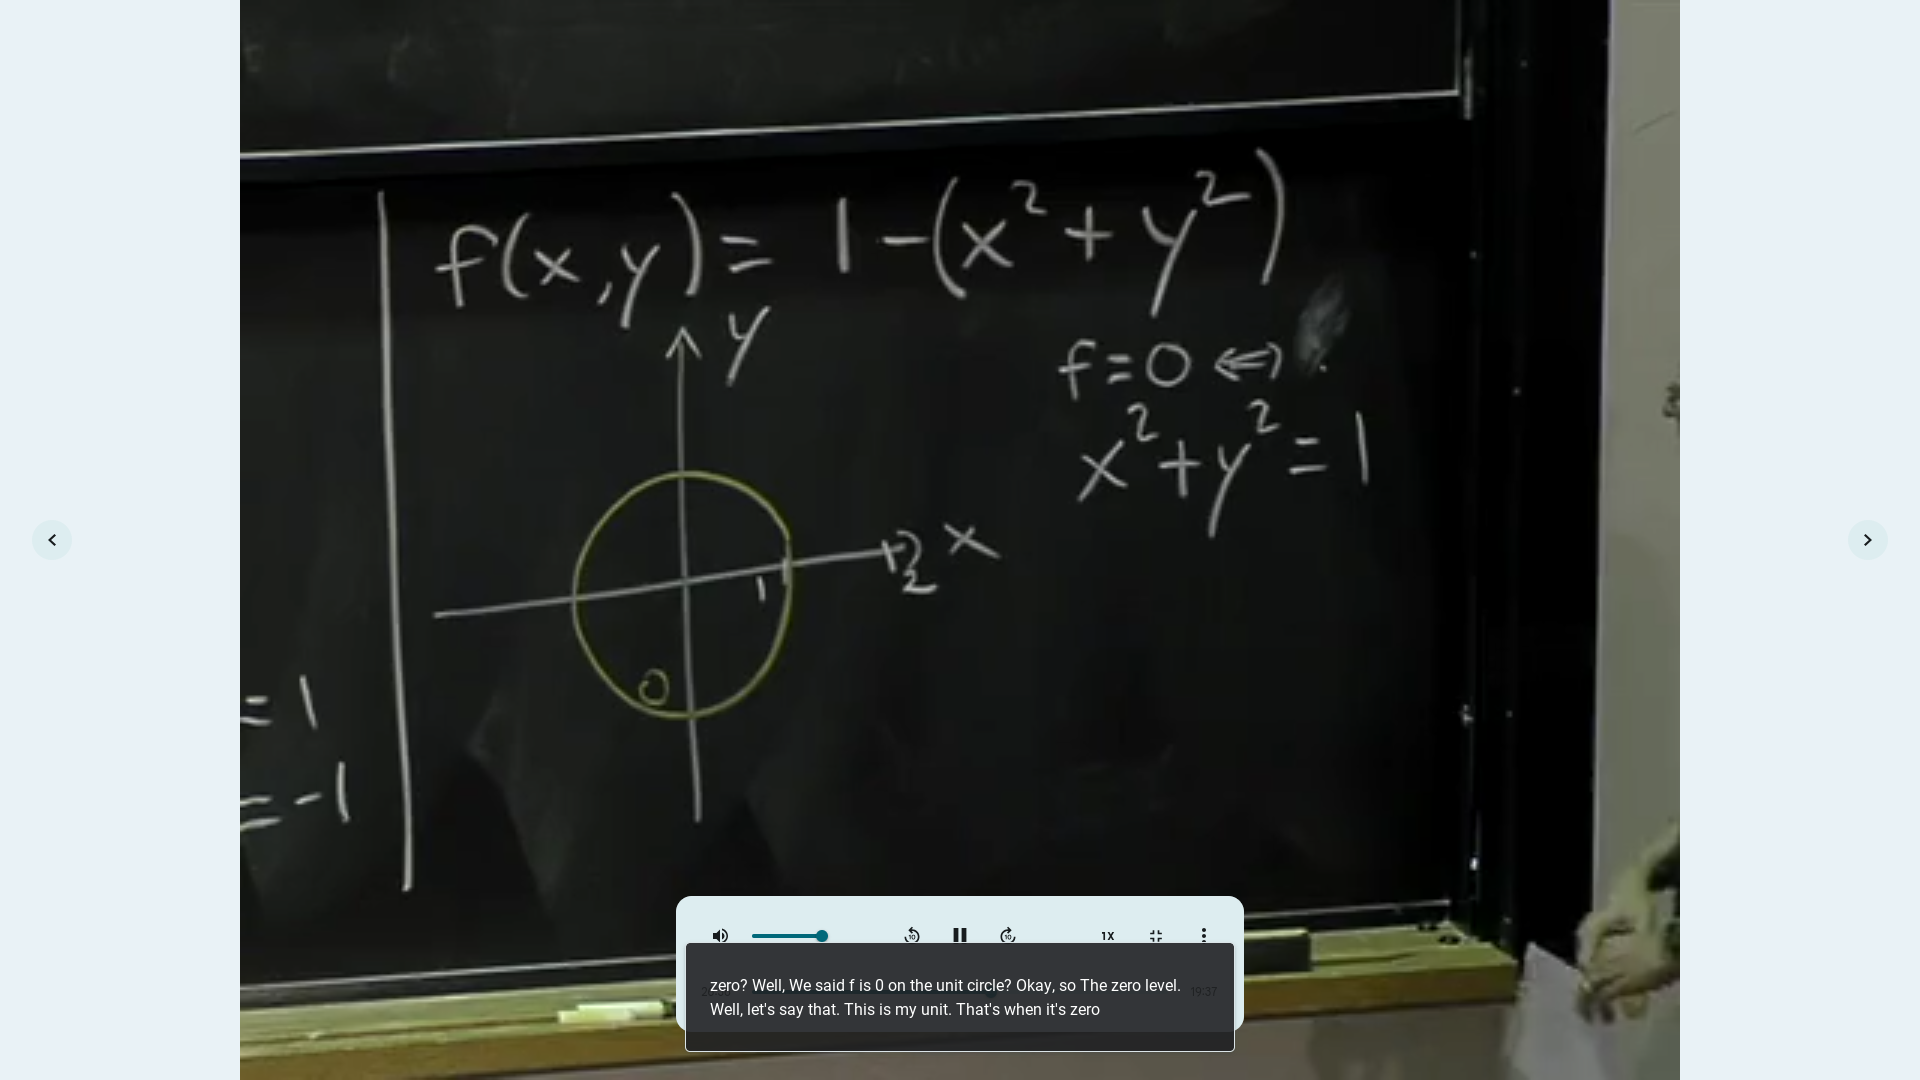 f(x,y) = 1-(x²+y²)
y
f=0 ⇔
x²+y² = 1
x
1
2
0
= 1
= -1
1X
zero? Well, We said f is 0 on the unit circle? Okay, so The zero level.
19:37
Well, let's say that. This is my unit. That's when it's zero